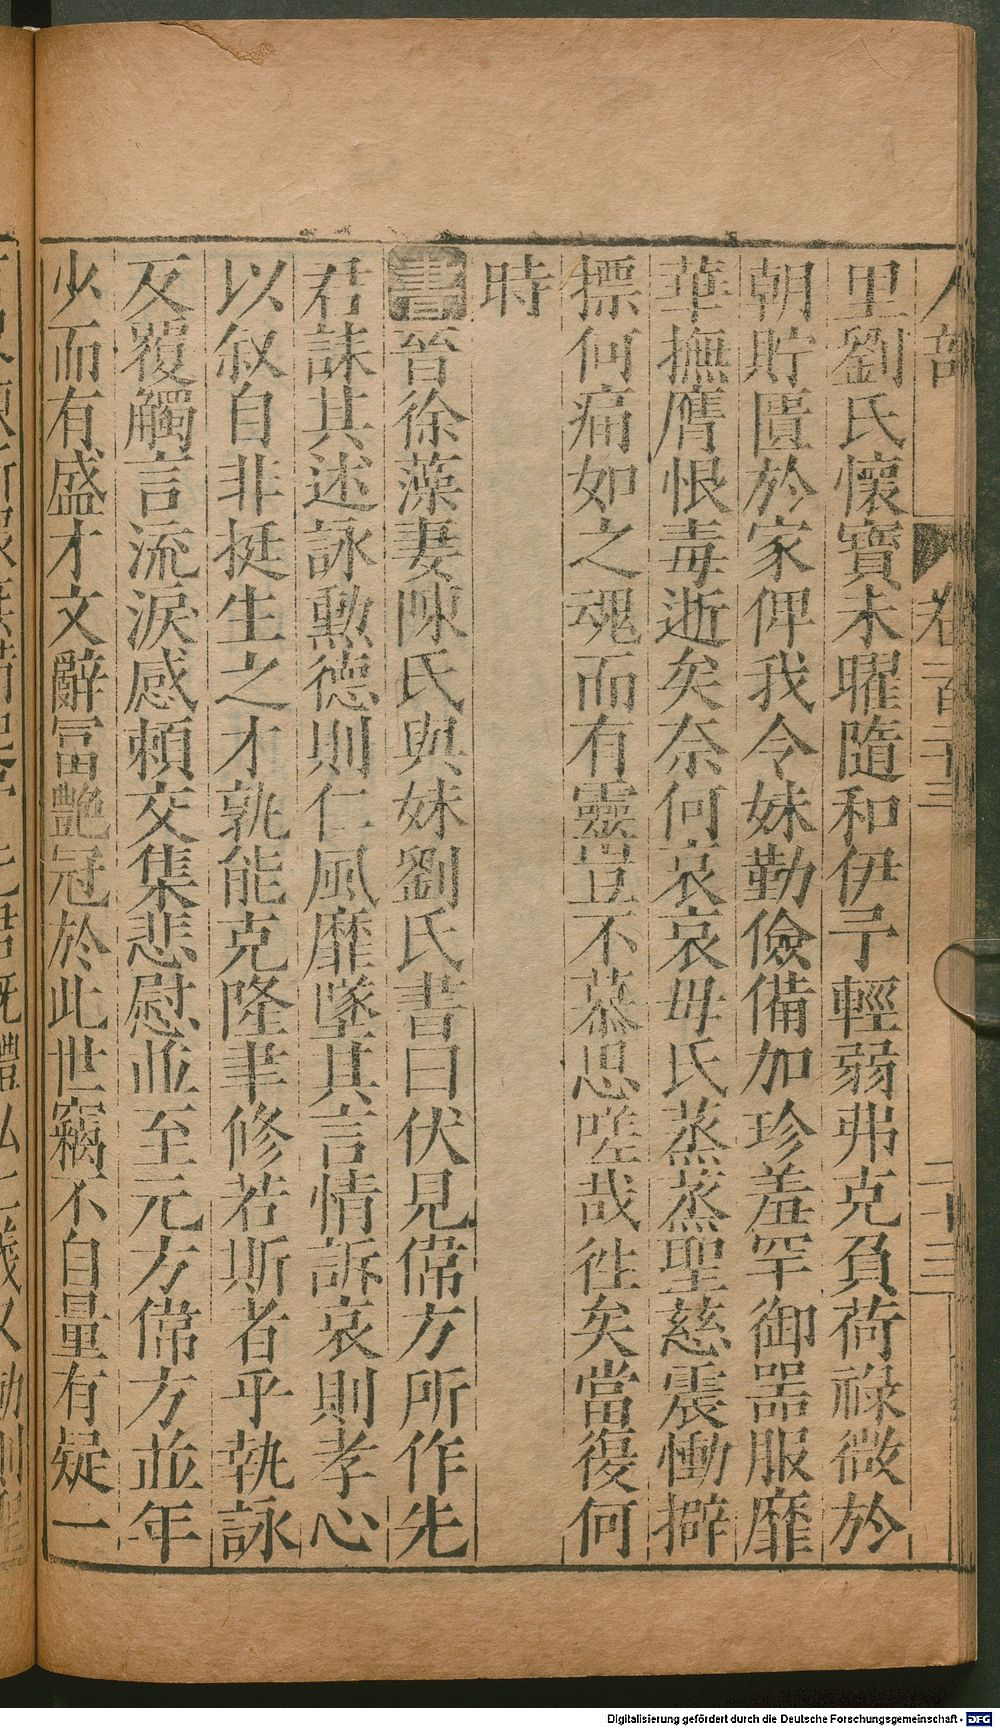 人部 卷一百二十三 二十三
里劉氏懷寶未曜隨和伊予輕弱弗克負荷祿微於
朝貯匱於家俾我令妹勤儉備加珍羞罕御器服靡
華撫膺恨毒逝矣奈何哀哀母氏蒸蒸聖慈震慟擗
摽何痛如之魂而有靈豈不慕思嗟哉徃矣當復何
時
書晉徐藻妻陳氏與妹劉氏書曰伏見偉方所作先
君誄其述詠勲德則仁風靡墜其言情訴哀則孝心
以叙自非挺生之才孰能克隆聿修若斯者乎執詠
反覆觸言流淚感賴交集悲慰並至元方偉方並年
少而有盛才文辭富艶冠於此世竊不自量有疑一
Digitalisierung gefördert durch die Deutsche Forschungsgemeinschaft - DFG